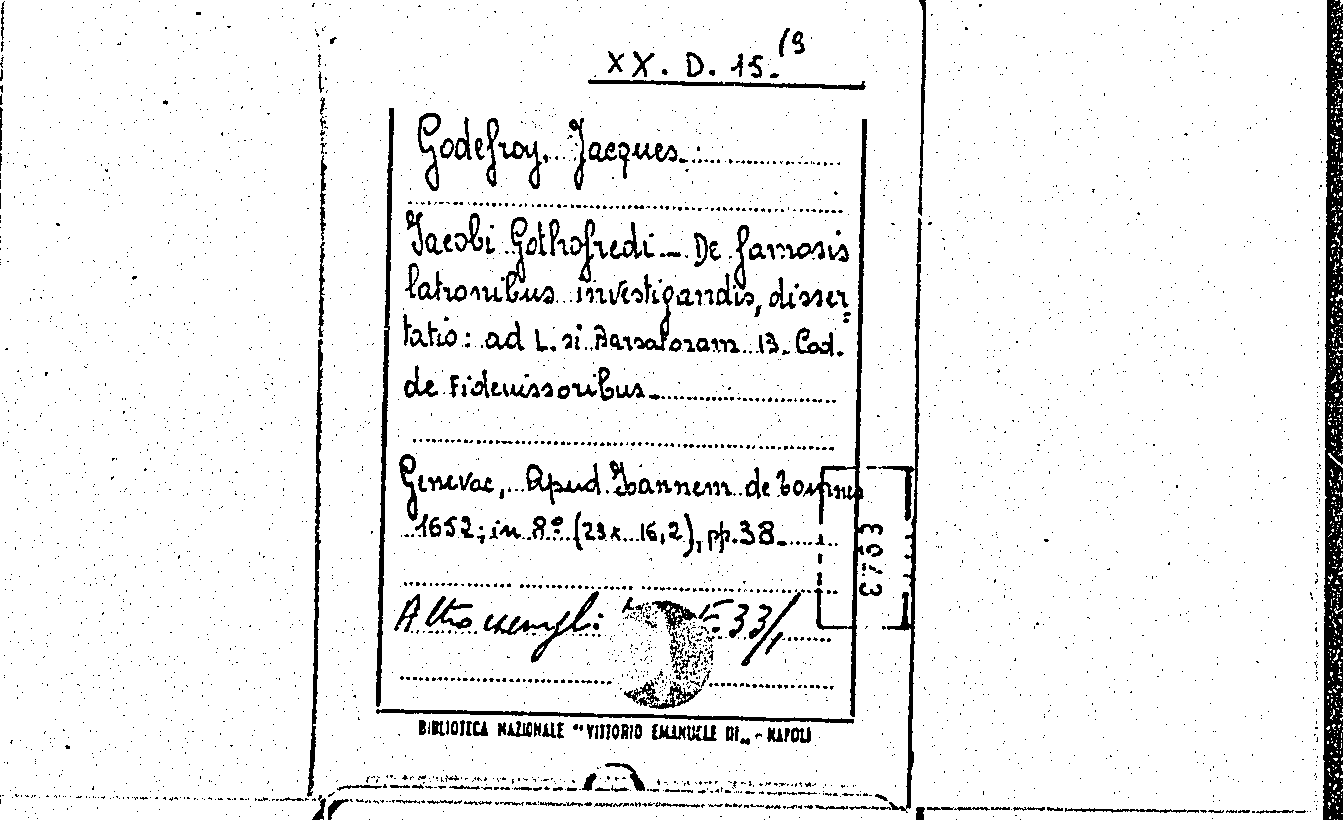 XX. D. 15. (9
Godefroy, Jacques.
Jacobi Gothofredi — De famosis
latronibus investigandis, disser=
tatio: ad L. si Barsatoram 13. Cod.
de Fideiussoribus.
Genevae, Apud Ioannem de Tournes
1652; in 8º (23x 16,2), pp. 38.
Altro esempl: 33/1
BIBLIOTECA NAZIONALE "VITTORIO EMANUELE III„ - NAPOLI